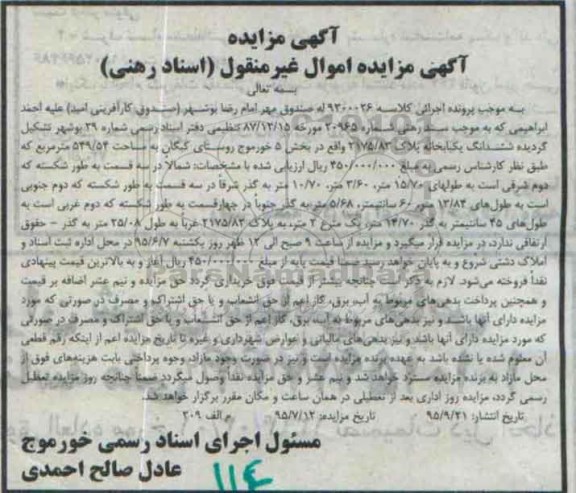 آگهی مزایده
آگهی مزایده اموال غیرمنقول (اسناد رهنی)
بسمه تعالی
به موجب پرونده اجرائی کلاسه ۹۲۰۰۰۲۶ له صندوق مهر امام رضا بوشهر (صندوق کارآفرینی امید) علیه احمد
ابراهیمی که به موجب سند رهنی شماره ۲۰۹۶۵ مورخه ۸۷/۱۲/۱۵ تنظیمی دفتر اسناد رسمی شماره ۲۹ بوشهر تشکیل
گردیده ششدانگ یکبابخانه پلاک ۲۱۷۵/۸۳ واقع در بخش ۵ خورموج روستای گنکان به مساحت ۵۴۹/۵۴ مترمربع که
طبق نظر کارشناس رسمی به مبلغ ۴۵۰/۰۰۰/۰۰۰ ریال ارزیابی شده با مشخصات: شمالاً در سه قسمت به طور شکسته که
دوم شرقی است به طولهای ۱۵/۷۰ متر، ۳/۶۰ متر، ۱۰/۷۰ متر به گذر شرقاً در سه قسمت به طور شکسته که دوم جنوبی
است به طول‌های ۱۳/۸۴ متر، ۶۰ سانتیمتر، ۵/۶۸ متر به گذر جنوباً در چهارقسمت به طور شکسته که دوم غربی است به
طول‌های ۴۵ سانتیمتر به گذر ۱۴/۷۰ متر، یک متر، ۲ متر، به پلاک ۲۱۷۵/۸۳ غرباً به طول ۲۵/۰۸ متر به گذر - حقوق
ارتفاقی ندارد، در مزایده قرار میگیرد و مزایده از ساعت ۹ صبح الی ۱۲ ظهر روز یکشنبه ۹۵/۶/۷ در محل اداره ثبت اسناد و
املاک دشتی شروع و به پایان خواهد رسید ضمناً قیمت پایه از مبلغ ۴۵۰/۰۰۰/۰۰۰ ریال آغاز و به بالاترین قیمت پیشنهادی
نقداً فروخته می‌شود. لازم به ذکر است چنانچه بیشتر از قیمت فوق خریداری گردد حق مزایده و نیم عشر اضافه بر قیمت
و همچنین پرداخت بدهی‌های مربوط به آب، برق، گاز اعم از حق انشعاب و یا حق اشتراک و مصرف در صورتی که مورد
مزایده دارای آنها باشد و نیز بدهی‌های مربوط به آب، برق، گاز اعم از حق انشعاب و یا حق اشتراک و مصرف در صورتی
که مورد مزایده دارای آنها باشد و نیز بدهی‌های مالیاتی و عوارض شهرداری و غیره تا تاریخ مزایده اعم از اینکه رقم قطعی
آن معلوم شده یا نشده باشد به عهده برنده مزایده است و نیز در صورت وجود مازاد، وجوه پرداختی بابت هزینه‌های فوق از
محل مازاد به برنده مزایده مسترد خواهد شد و نیم عشر و حق مزایده نقداً وصول میگردد ضمناً چنانچه روز مزایده تعطیل
رسمی گردد، مزایده روز اداری بعد از تعطیلی در همان ساعت و مکان مقرر برگزار خواهد شد.
تاریخ انتشار: ۹۵/۹/۲۱ تاریخ مزایده: ۹۵/۷/۱۲ م الف ۲۰۹
مسئول اجرای اسناد رسمی خورموج
عادل صالح احمدی
۱۱۴